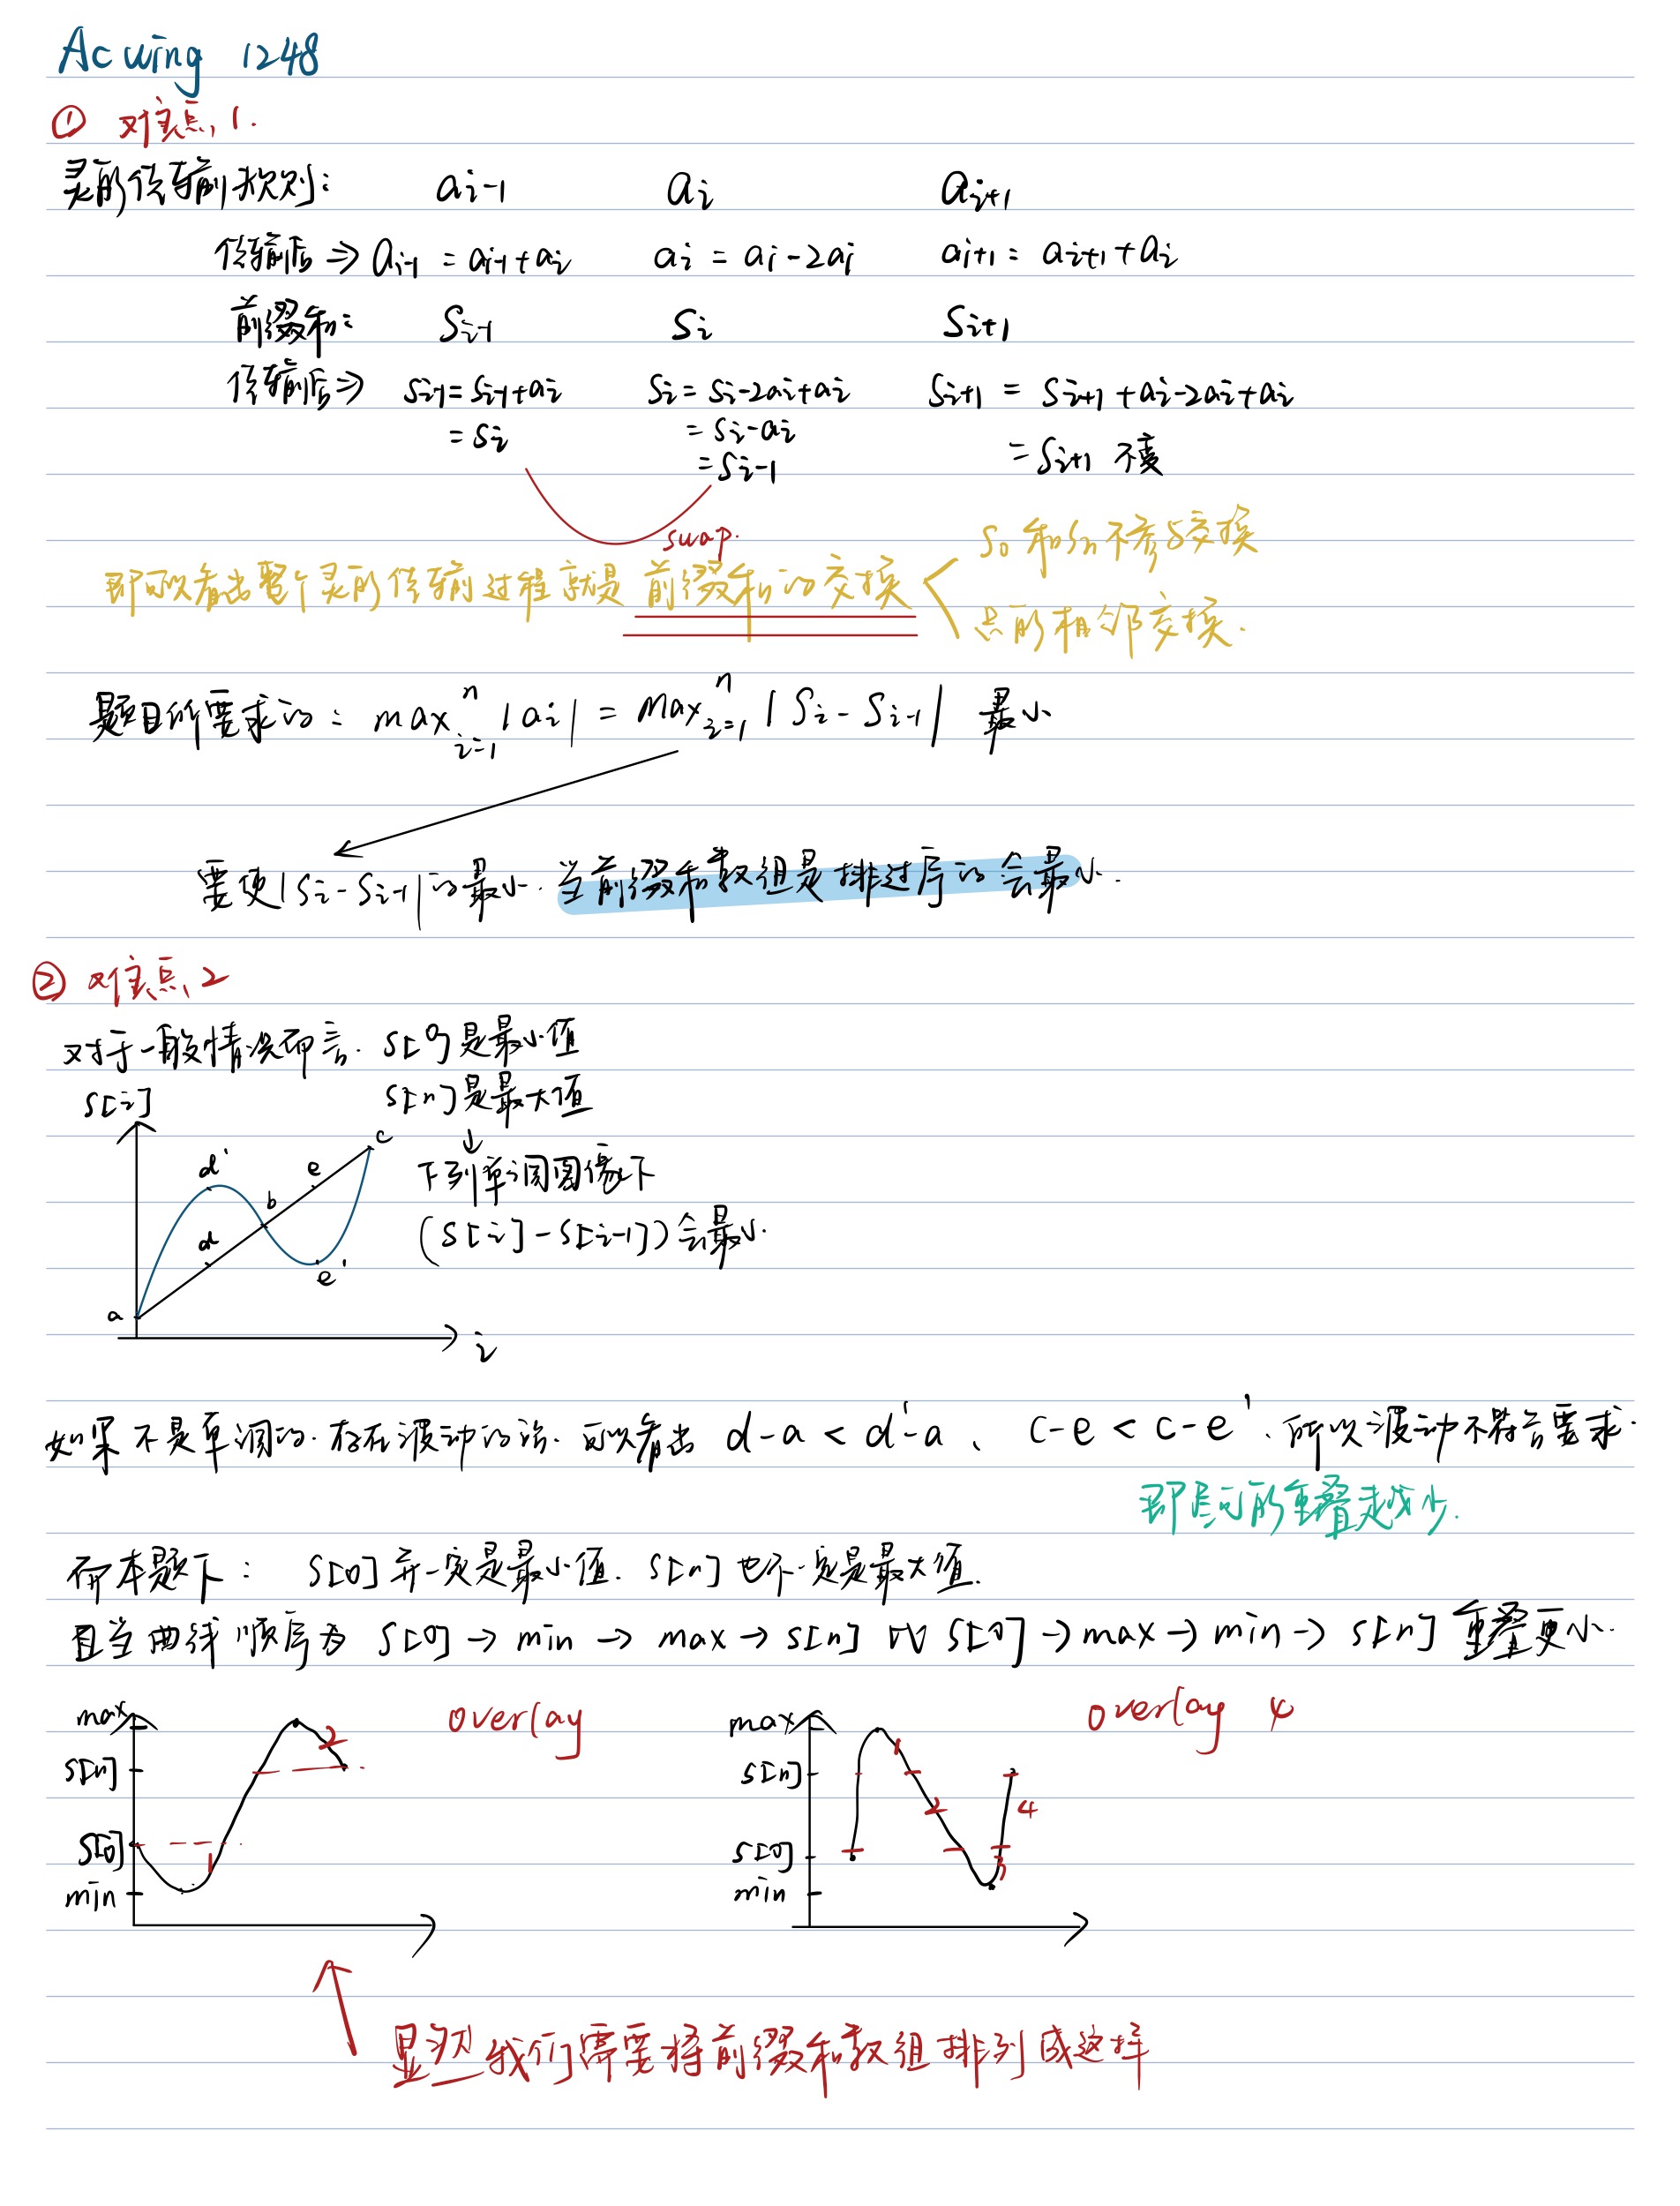 Acwing 1248
① 难点1.
灵能传输规则： ai-1 ai ai+1
传输后 ⇒ ai-1 = ai-1+ai ai = ai-2ai ai+1 = ai+1+ai
前缀和： Si-1 Si Si+1
传输后 ⇒ Si-1=Si-1+ai Si=Si-2ai+ai Si+1 = Si+1+ai-2ai+ai
= Si = Si-ai = Si+1 不变
= Si-1
swap.
即可以看出整个灵能传输过程就是 前缀和的交换
S0 和Sn不参与交换
只能相邻交换.
题目所要求的： max i=1 n |ai| = max i=1 n |Si - Si-1| 最小
需使|Si - Si-1|的最小. 当前缀和数组是排过序的会最小.
② 难点2
对于一般情况而言. S[0]是最小值
S[n]是最大值
↓
下列单调图像下
(S[i]-S[i-1])会最小.
S[i]
a d b e c d' e'
i
如果不是单调的. 存在波动的话. 可以看出 d-a < d'-a 、 c-e < c-e'. 所以波动不符合要求.
即尽可能重叠越少.
而本题下： S[0]并一定是最小值. S[n]也不一定是最大值.
且当曲线顺序为 S[0] → min → max → S[n] 比 S[0] → max → min → S[n] 重叠更小.
max
S[n]
S[0]
min
1 2
overlay
max
S[n]
S[0]
min
1 2 3 4
overlay 4
显然我们需要将前缀和数组排列成这样